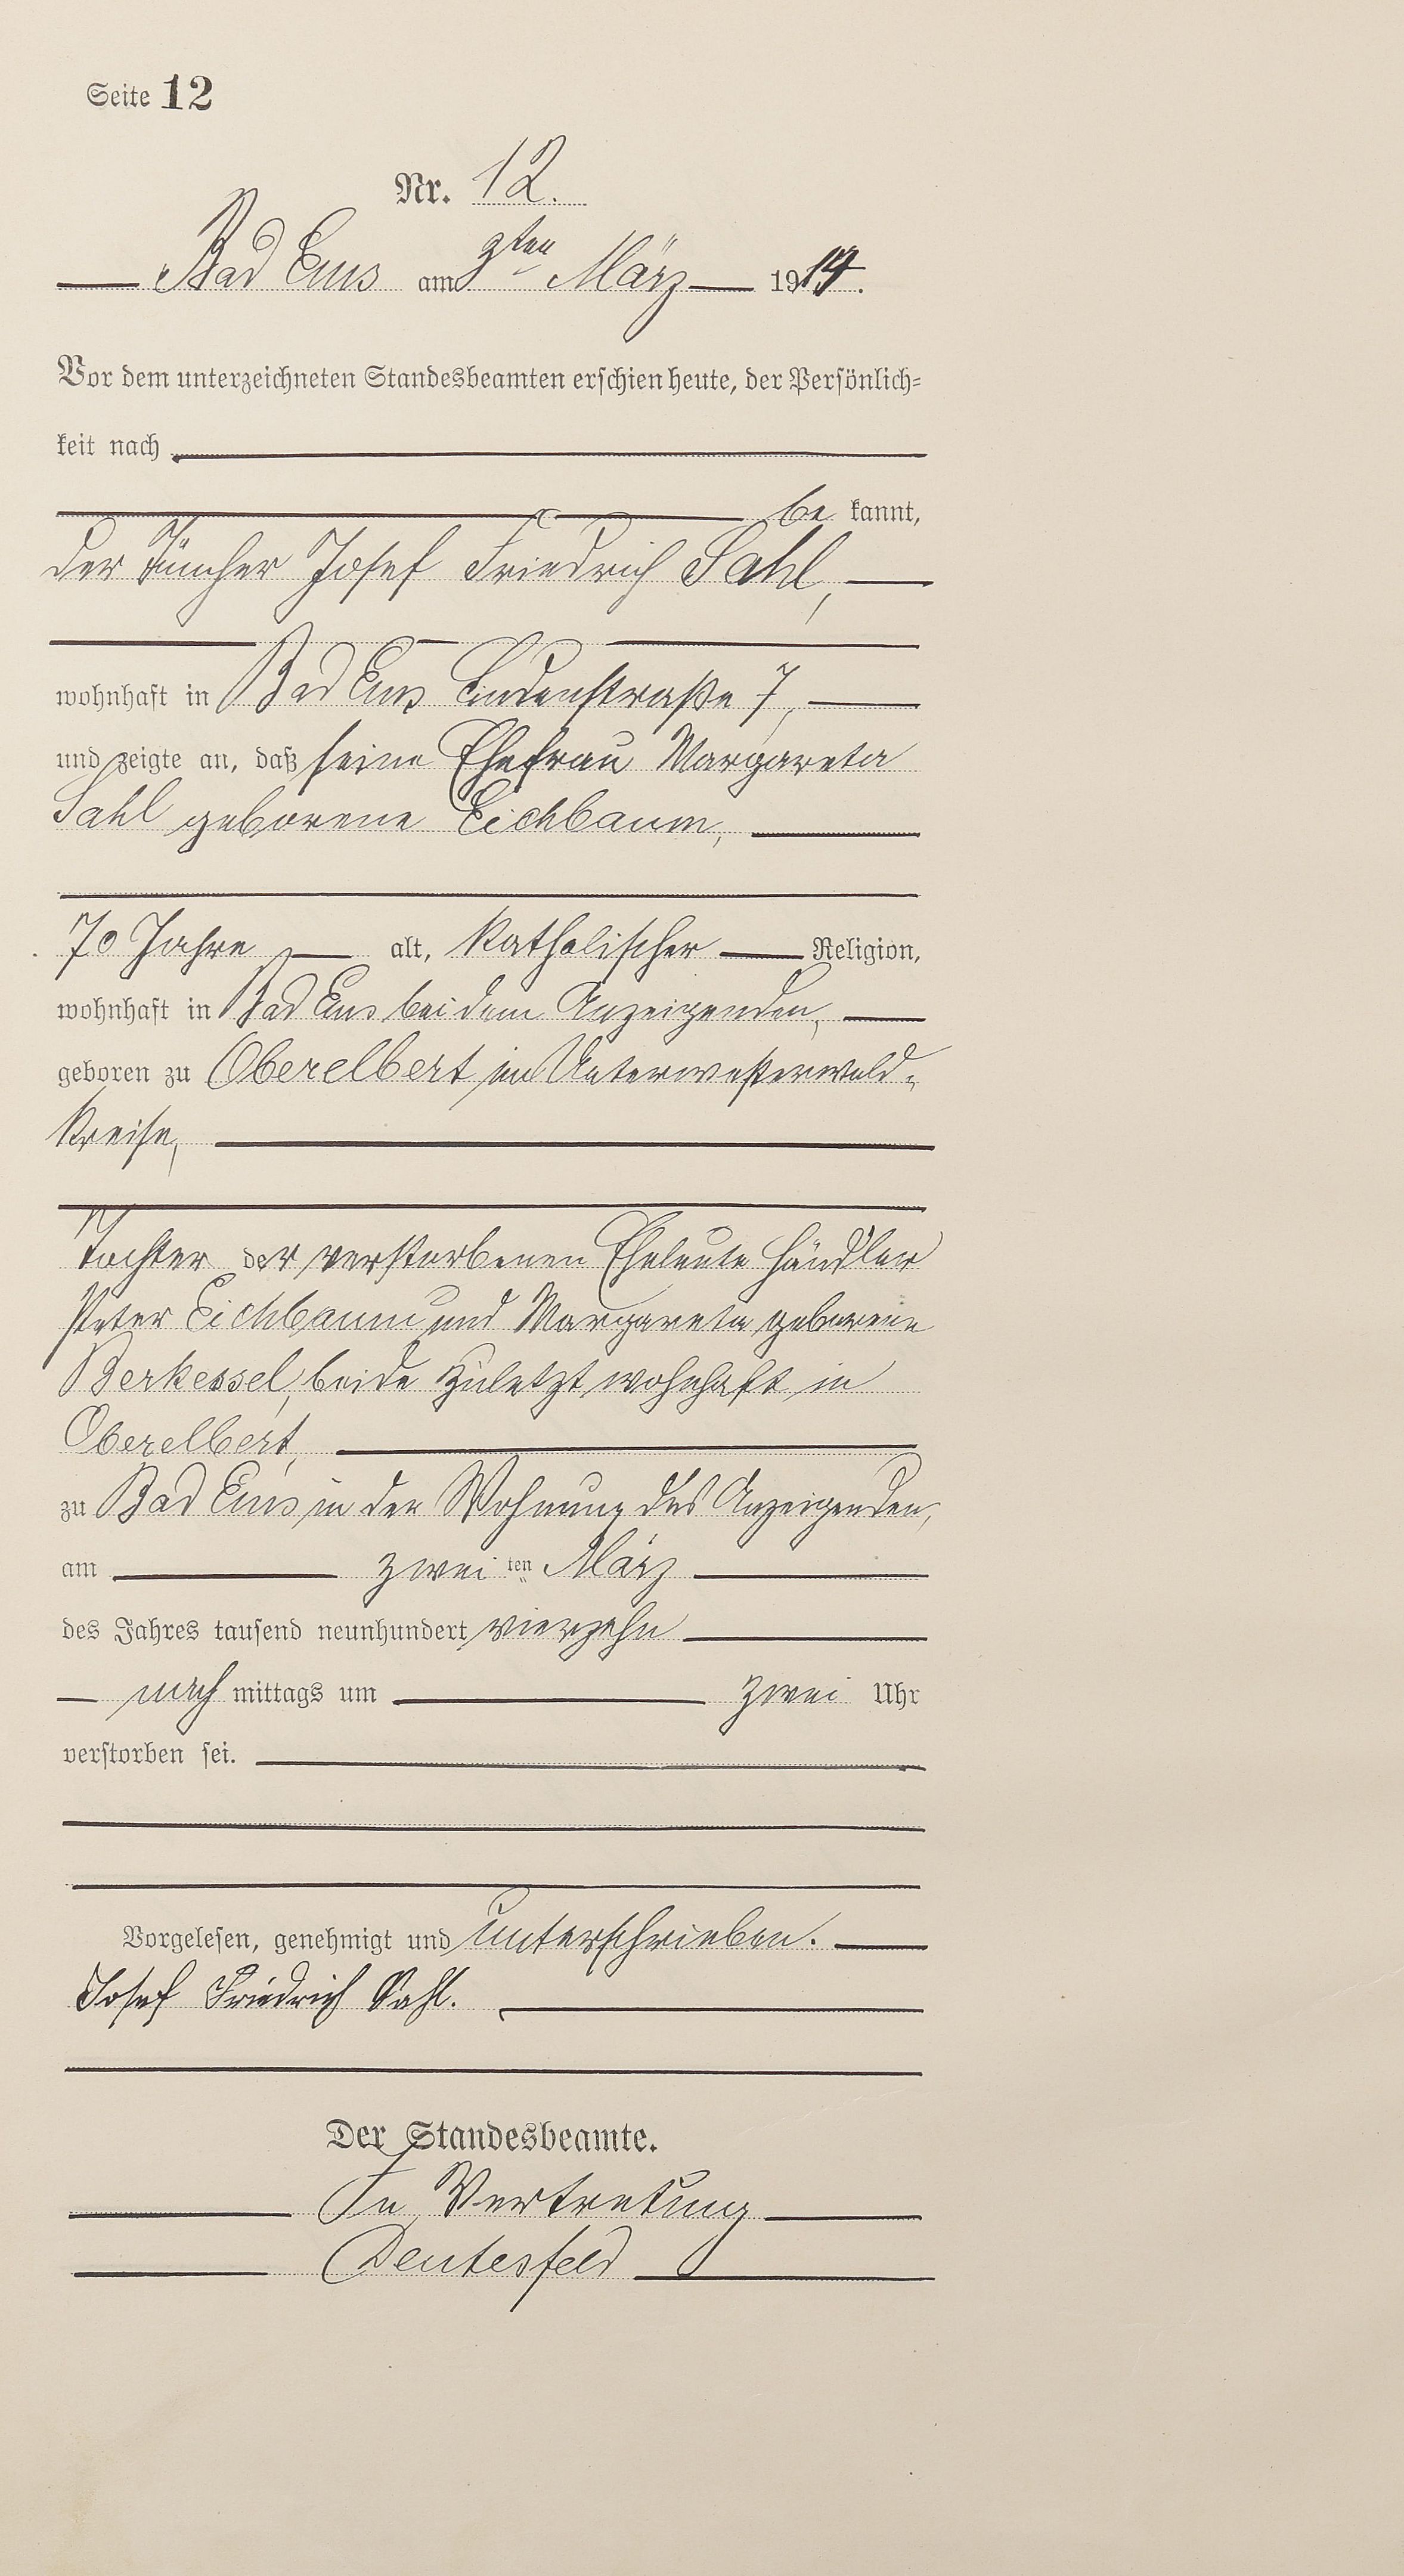 Seite 12
Nr. 12.
Bad Ems am 3ten März 1914.
Vor dem unterzeichneten Standesbeamten erschien heute, der Persönlich-
keit nach
be kannt,
der Tüncher Josef Friedrich Sahl,
wohnhaft in Bad Ems Lindenstraße 7,
und zeigte an, daß seine Ehefrau Margareta
Sahl geborene Eichbaum,
70 Jahre alt, katholischer Religion,
wohnhaft in Bad Ems bei dem Anzeigenden,
geboren zu Oberelbert im Unterwesterwald-
kreise,
Tochter der verstorbenen Eheleute Händler
Peter Eichbaum und Margareta geborene
Berkessel, beide zuletzt wohnhaft in
Oberelbert,
zu Bad Ems in der Wohnung des Anzeigenden,
am zwei ten März
des Jahres tausend neunhundert vierzehn
nach mittags um zwei Uhr
verstorben sei.
Vorgelesen, genehmigt und unterschrieben.
Josef Friedrich Sahl.
Der Standesbeamte.
In Vertretung